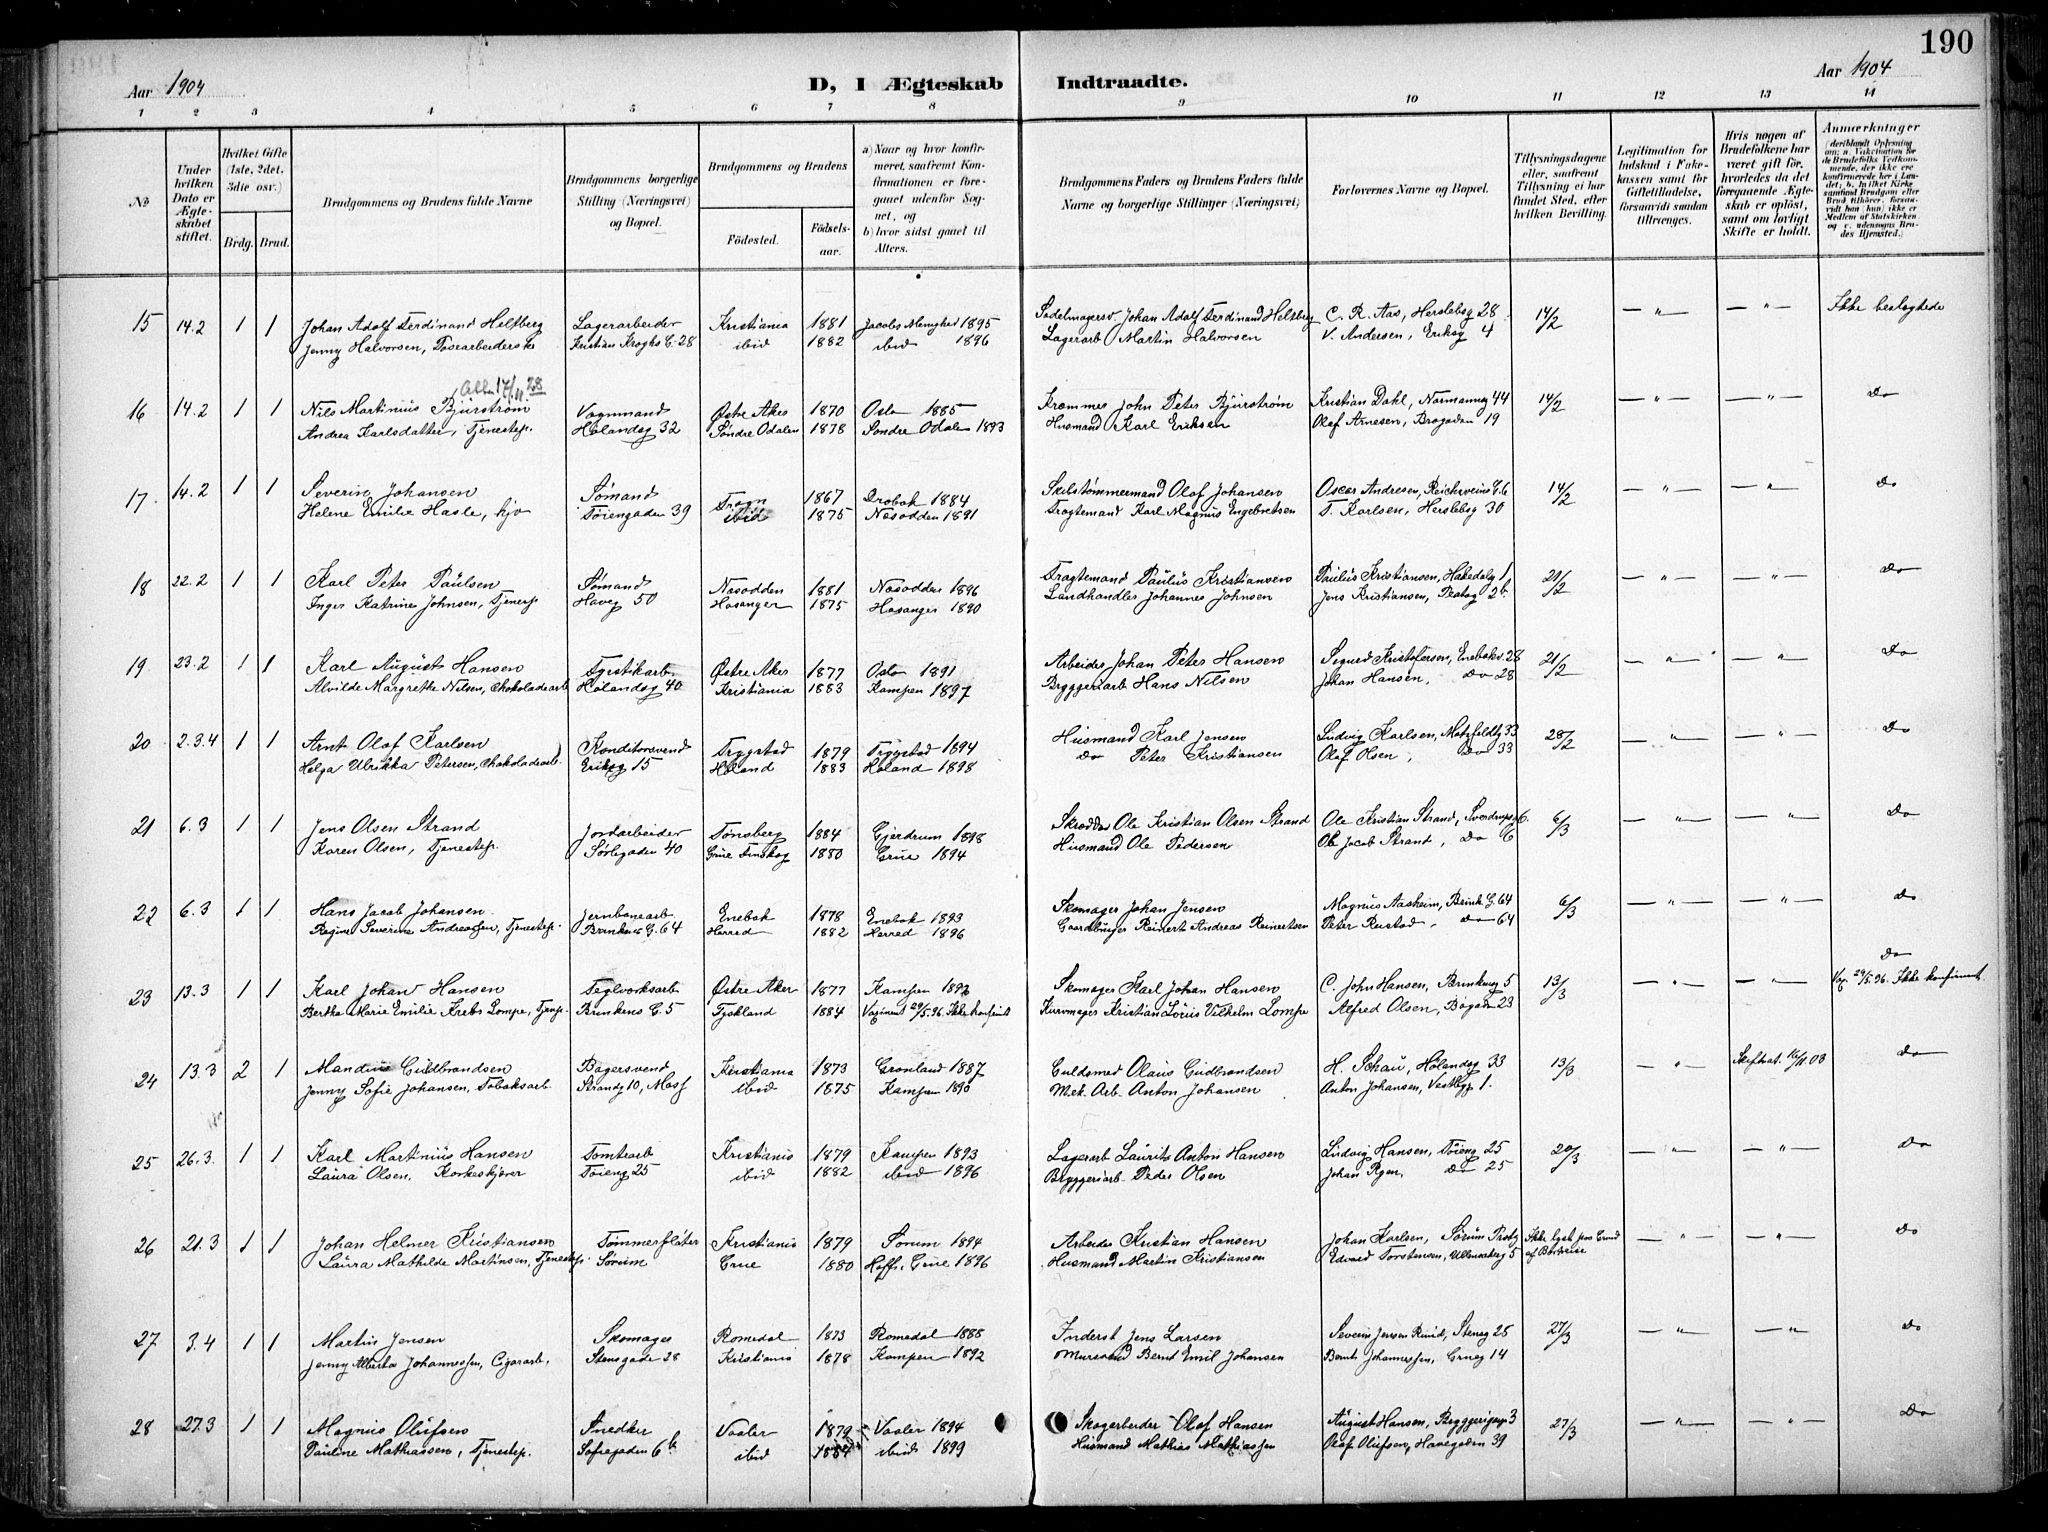 190
Aar 1904
D, I Ægteskab Indtraadte.
Aar 1904
1 2 3 4 5 6 7 8 9 10 11 12 13 14
No
Under hvilken Dato er Ægteskabet stiftet.
Hvilket Gifte (1ste, 2det, 3die osv.)
Brdg. Brud.
Brudgommens og Brudens fulde Navne
Brudgommens borgerlige Stilling (Næringsvei) og Bopæl.
Brudgommens og Brudens
Fødested.
Fødselsaar.
a) Naar og hvor konfirmeret, saafremt Konfirmationen er foregaaet udenfor Sognet, og
b) hvor sidst gaaet til Alters.
Brudgommens Faders og Brudens Faders fulde Navne og borgerlige Stillinger (Næringsvei)
Forlovernes Navne og Bopæl.
Tillysningsdagene eller, saafremt Tillysning ei har fundet Sted, efter hvilken Bevilling.
Legitimation for Indskud i Enkekassen samt for Giftetilladelse, forsaavidt saadan tiltrænges.
Hvis nogen af Brudefolkene har været gift før, hvorledes da det foregaaende Ægteskab er opløst, samt om lovligt Skifte er holdt.
Anmærkninger (deriblandt Oplysning om: a. Vakcination for de Brudefolks Vedkommende, der ikke ere konfirmerede her i Landet; b. hvilket Kirkesamfund Brudgom eller Brud tilhører, forsaavidt han (hun) ikke er Medlem af Statskirken og c. udensogns Brudes Hjemsted.)
15 14.2 1 1 Johan Adolf Ferdinand Helsberg Lagerarbeider Kristiania 1881 Jacobs Menighed 1895 Sadelmagersv Johan Adolf Ferdinand Helsberg C. R. Aas, Herslebsg 28 14/2 — " — — " — Ikke beslægtede
Jenny Halvorsen, Poseaarbeiderske Kristian Kroghs G. 28 ibid 1882 ibid 1896 Lagerarb Martin Halvorsen V. Andersen, Eriksg 4
16 14.2 1 1 Nils Martinius Bjurstrøm Vognmand Østre Aker 1870 Oslo 1885 Kræmmer John Peter Bjurstrøm Kristian Dahl, Normanng 44 14/2 — " — — " — Do
Andrea Karlsdatter, Tjenestep. Hølandsg 32 Søndre Odalen 1878 Søndre Odalen 1893 Husmand Karl Eriksen Olaf Arnesen, Brogaden 19
17 14.2 1 1 Severin Johansen Sømand Frogn 1867 Drøbak 1884 Skibstømmermand Olaf Johansen Oscar Andresen, Reichweins G. 6 14/2 — " — — " — Do
Helene Emilie Hasle, hjv Tøiengaden 39 ibid 1875 Næsodden 1891 Fragtemand Karl Magnus Engebretsen T. Karlsen, Herslebsg 30
18 22.2 1 1 Karl Peter Paulsen Sømand Næsodden 1881 Næsodden 1896 Fragtemand Paulus Kristiansen Paulus Kristiansen, Hakedalsg 1 21/2 — " — — " — Do
Inger Katrine Johnsen, Tjenestp Haveg 50 Hosanger 1875 Hosanger 1890 Landhandler Johannes Johnsen Jens Kristiansen,
19 23.2 1 1 Karl August Hansen Østre Aker 1877 Oslo 1891 Arbeider Johan Peter Hansen Sigurd Kristofersen, Enebakv. 28 21/2 — " — — " — Do
Alvilde Margrethe Nilsen, Chokoladearb Hølandsg 40 Kristiania 1883 Kampen 1897 Bryggeriarb Hans Nilsen Johan Hansen, Do 28
20 2.3.4 1 1 Arnt Olaf Karlsen Konditorsvend Trygstad 1879 Trygstad 1894 Husmand Karl Jensen Ludvig Karlsen, Motzfeldtg 33 28/2 — " — — " — Do
Helga Ulrikka Petersen, Chokoladearb. Eriksg 15 Høland 1883 Høland 1898 Do Peter Kristiansen Olaf Olsen, Do 33
21 6.3 1 1 Jens Olsen Strand Jordarbeider Tønsberg 1884 Gjerdrum 1898 Skrædder Ole Kristian Olsen Strand Ole Kristian Strand, Sverdrupsg 6. 6/3 — " — — " — Do
Karen Olsen, Tjenestep. Sørligaden 40 Grue Finskog 1880 Grue 1894 Husmand Ole Pedersen Ole Jacob Strand, Do 6
22 6.3 1 1 Hans Jacob Johansen Jernbanearb. Enebak 1878 Enebak 1893 Skomager Johan Jensen Magnus Aasheim, Brink G. 64 6/3 — " — — " — Do
Regine Severine Andreassen, Tjenestep. Brinkens G. 64 Herred 1882 Herred 1896 Gaardbruger Reinert Andreas Reinertsen Peter Rustad, Do 64
23 13.3 1 1 Karl Johan Hansen Teglverksarb Østre Aker 1877 Kampen 1892 Skomager Karl Johan Hansen C. John Hansen, Brinkensg 5 13/3 — " — — " — Do
Bertha Marie Emilie Krebs Lompe, Tjenp. Brinkens G. 5 Tyskland 1884 Vaxineret 29/5.96 Ikke konfirmeret Kurvmager Kristian Louis Vilhelm Lompe Alfred Olsen, Bøgaden 23 Vax. 29/5.96. Ikke konfirmeret
24 13.3 2 1 Mandius Gudbrandsen Bagersvend Kristiania 1873 Grønland 1887 Guldsmed Olaus Gudbrandsen H. Schau, Hølandsg 33 13/3 — " — Skifteat. 16/11 03 Do
Jenny Sofie Johansen, Tobaksarb. Strandg 10, Moss ibid 1875 Kampen 1890 Mek. Arb. Anton Johansen Anton Johansen, Vestbyg 1.
25 26.3. 1 1 Karl Martinius Hansen Tomtearb Kristiania 1879 Kampen 1893 Lagerarb Laurits Anton Hansen Ludvig Hansen, Tøieng 25 20/3 — " — — " — Do
Laura Olsen, Korkeskjærer Tøieng 25 ibid 1882 ibid 1896 Bryggeriarb. Peder Olsen Johan Ryen, Do 25
26 21.3 1 1 Johan Helmer Kristiansen Tømmerfløter Kristiania 1879 Sørum 1894 Arbeider Kristian Hansen Johan Karlsen, Sørum Prstg Ikke lyst paa Grund af Bortreise — " — — " — Do
Laura Mathilde Martinsen, Tjenestep. Sørum Grue 1880 Hoff, Grue 1896 Husmand Martin Kristiansen Edvard Torstensen, Ullensakerg 5
27 3.4 1 1 Martin Jensen Skomager Romedal 1873 Romedal 1888 Inderst Jens Larsen Severin Jensen Ruud, Stensg 25 27/3 — " — — " — Do
Jenny Alberta Johannessen, Cigararb. Stensgade 28 Kristiania 1878 Kampen 1892 Mursvend Bernt Emil Johansen Bernt Johannessen, Grueg 14
28 27.3 1 1 Magnus Olufsen Snedker Vaaler 1879 Vaaler 1894 Skogarbeider Olaf Hansen August Hansen, Bryggerigaden 3 27/3 — " — — " — Do
Pauline Mathiassen, Tjenestep. Sofiegaden 6b ibid 1884 ibid 1899 Husmand Mathias Mathiassen Olaf Olufsen, Havegaden 39